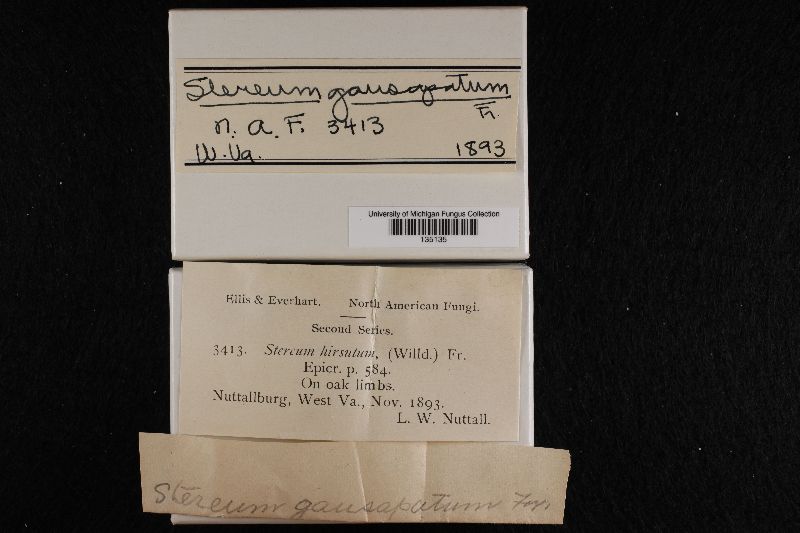 Stereum gausapatum
Fr.
N. A. F. 3413
W. Va. 1893
University of Michigan Fungus Collection
Ellis & Everhart. North American Fungi.
Second Series.
3413. Stereum hirsutum, (Willd.) Fr.
Epicr. p. 584.
On oak limbs.
Nuttallburg, West Va., Nov. 1893.
L. W. Nuttall.
Stereum gausapatum